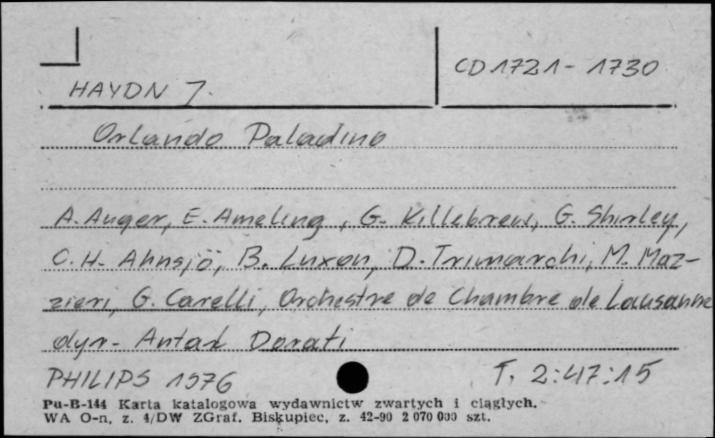 CD 1721 - 1730
HAYDN J.
Orlando Paladino
A. Auger, E. Ameling, G. Killebrew, G. Shirley,
C. H. Ahnsjö, B. Luxon, D. Trimarchi, M. Maz-
zieri, G. Carelli, Orchestre de Chambre de Lausanne
dyr. Antal Dorati
PHILIPS 1976
T. 2:47:15
Pu-B-144 Karta katalogowa wydawnictw zwartych i ciągłych.
WA O-n, z. 4/DW ZGraf. Biskupiec, z. 42-90 2 070 000 szt.